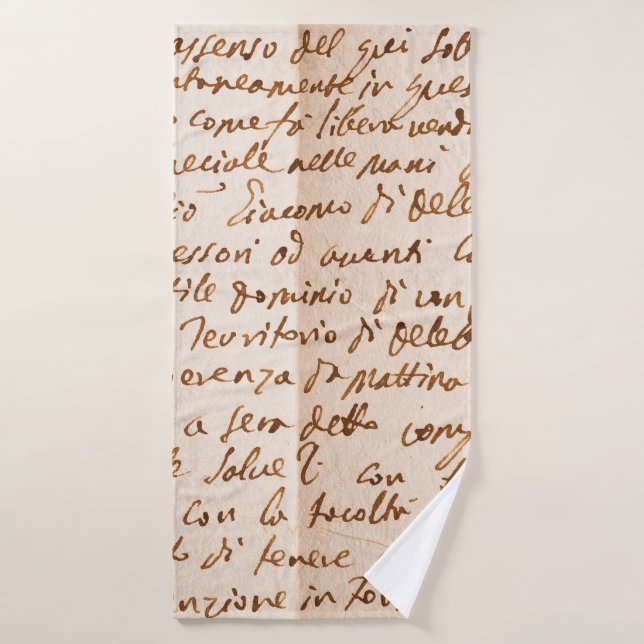 assenso del qui sot
ntaneamente in ques
come fà libera vendi
eciale nelle mani
Giacomo di Dele
essori od aventi
tile Dominio di un p
Territorio di Deleb
erenza da mattina
a sera detto cony
Salve
con
con la facoltà
di tenere
nzione in For